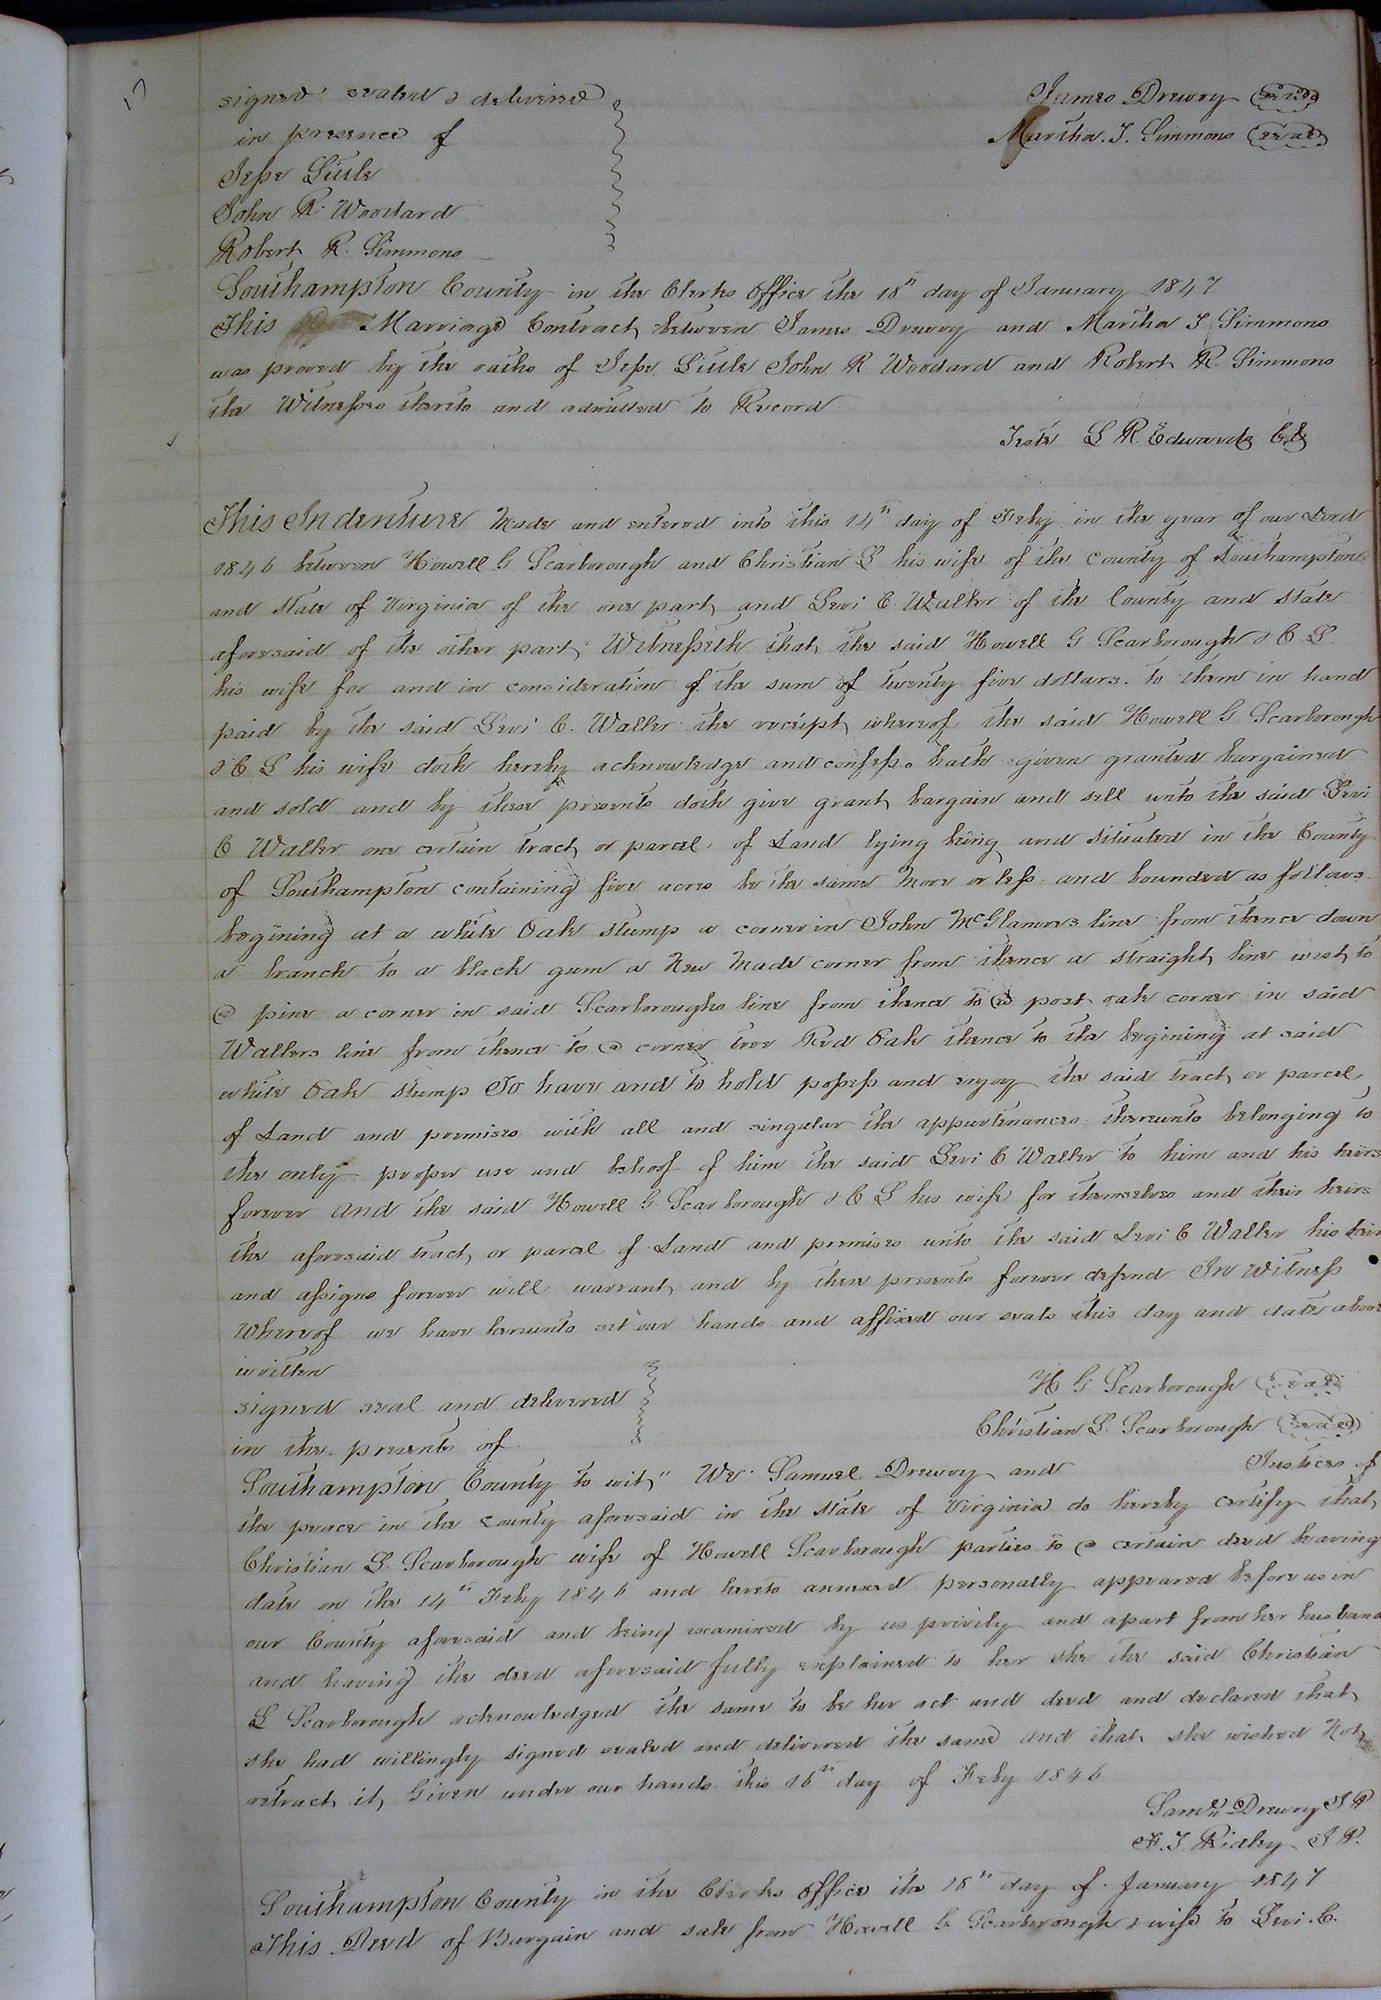 17
signed sealed & delivered James Drewry Seal
in presence of Martha. T. Simmons Seal
Jesse Little
John R. Woodard
Robert R. Simmons
Southampton County in the Clerks Office the 18th day of January 1847
This Marriage Contract between James Drewry and Martha T Simmons
was proved by the oaths of Jesse Little John R Woodard and Robert R. Simmons
the Witnesses thereto and admitted to Record
Teste L R. Edwards Clk
This Indenture Made and entered into this 14th day of Feby in the year of our Lord
1846 between Howell G Scarborough and Christian L his wife of the County of Southampton
and State of Virginia of the one part and Levi C. Waller of the County and State
aforesaid of the other part; Witnesseth that the said Howell G Scarborough & C. L.
his wife for and in consideration of the sum of twenty five dollars. to them in hand
paid by the said Levi C. Waller the receipt whereof the said Howell G Scarborough
& C L his wife doth hereby acknowledge and confess. hath given granted bargained
and sold and by these presents doth give grant bargain and sell unto the said Levi
C Waller one certain tract or parcel of Land lying being and situated in the County
of Southampton containing five acres be the same more or less and bounded as follows
begining at a white Oak stump a corner in John McGlamores line from thence down
a branch to a black gum a New Made corner from thence a straight line west to
a pine a corner in said Scarboroughs line from thence to a post oak corner in said
Wallers line from thence to a corner tree Red Oak thence to the begining at said
white Oak stump To have and to hold possess and enjoy the said tract or parcel
of Land and premises with all and singular the appurtenances thereunto belonging to
the only proper use and behoof of him the said Levi C Waller to him and his heirs
forever and the said Howell G Scarborough & C L his wife for themselves and their heirs
the aforesaid tract or parcel of Land and premises unto the said Levi C Waller his heir
and assigns forever will warrant and by these presents forever defend In Witness
Whereof we have hereunto set our hands and affixed our seals this day and date above
written H G Scarborough Seal
signed seal and delivered Christian L. Scarborough Seal
in the presents of
Southampton County to wit" We Samuel Drewry and Justices of
the peace in the County aforesaid in the State of Virginia do hereby certify that
Christian L. Scarborough wife of Howell Scarborough parties to a certain deed bearing
date on the 14th Feby 1846 and hereto annexed personally appeared before us in
our County aforesaid and being examined by us privily and apart from her husband
and having the deed aforesaid fully explained to her she the said Christian
L Scarborough acknowledged the same to be her act and deed and declared that
she had willingly signed sealed and delivered the same and that she wished Not
retract it, Given under our hands this 16th day of Feby 1846
Saml Drewry J P
F. T. Ridley J P.
Southampton County in the Clerks office the 18th day of January 1847
This Deed of Bargain and sale from Howell G Scarborough & wife to Levi. C.